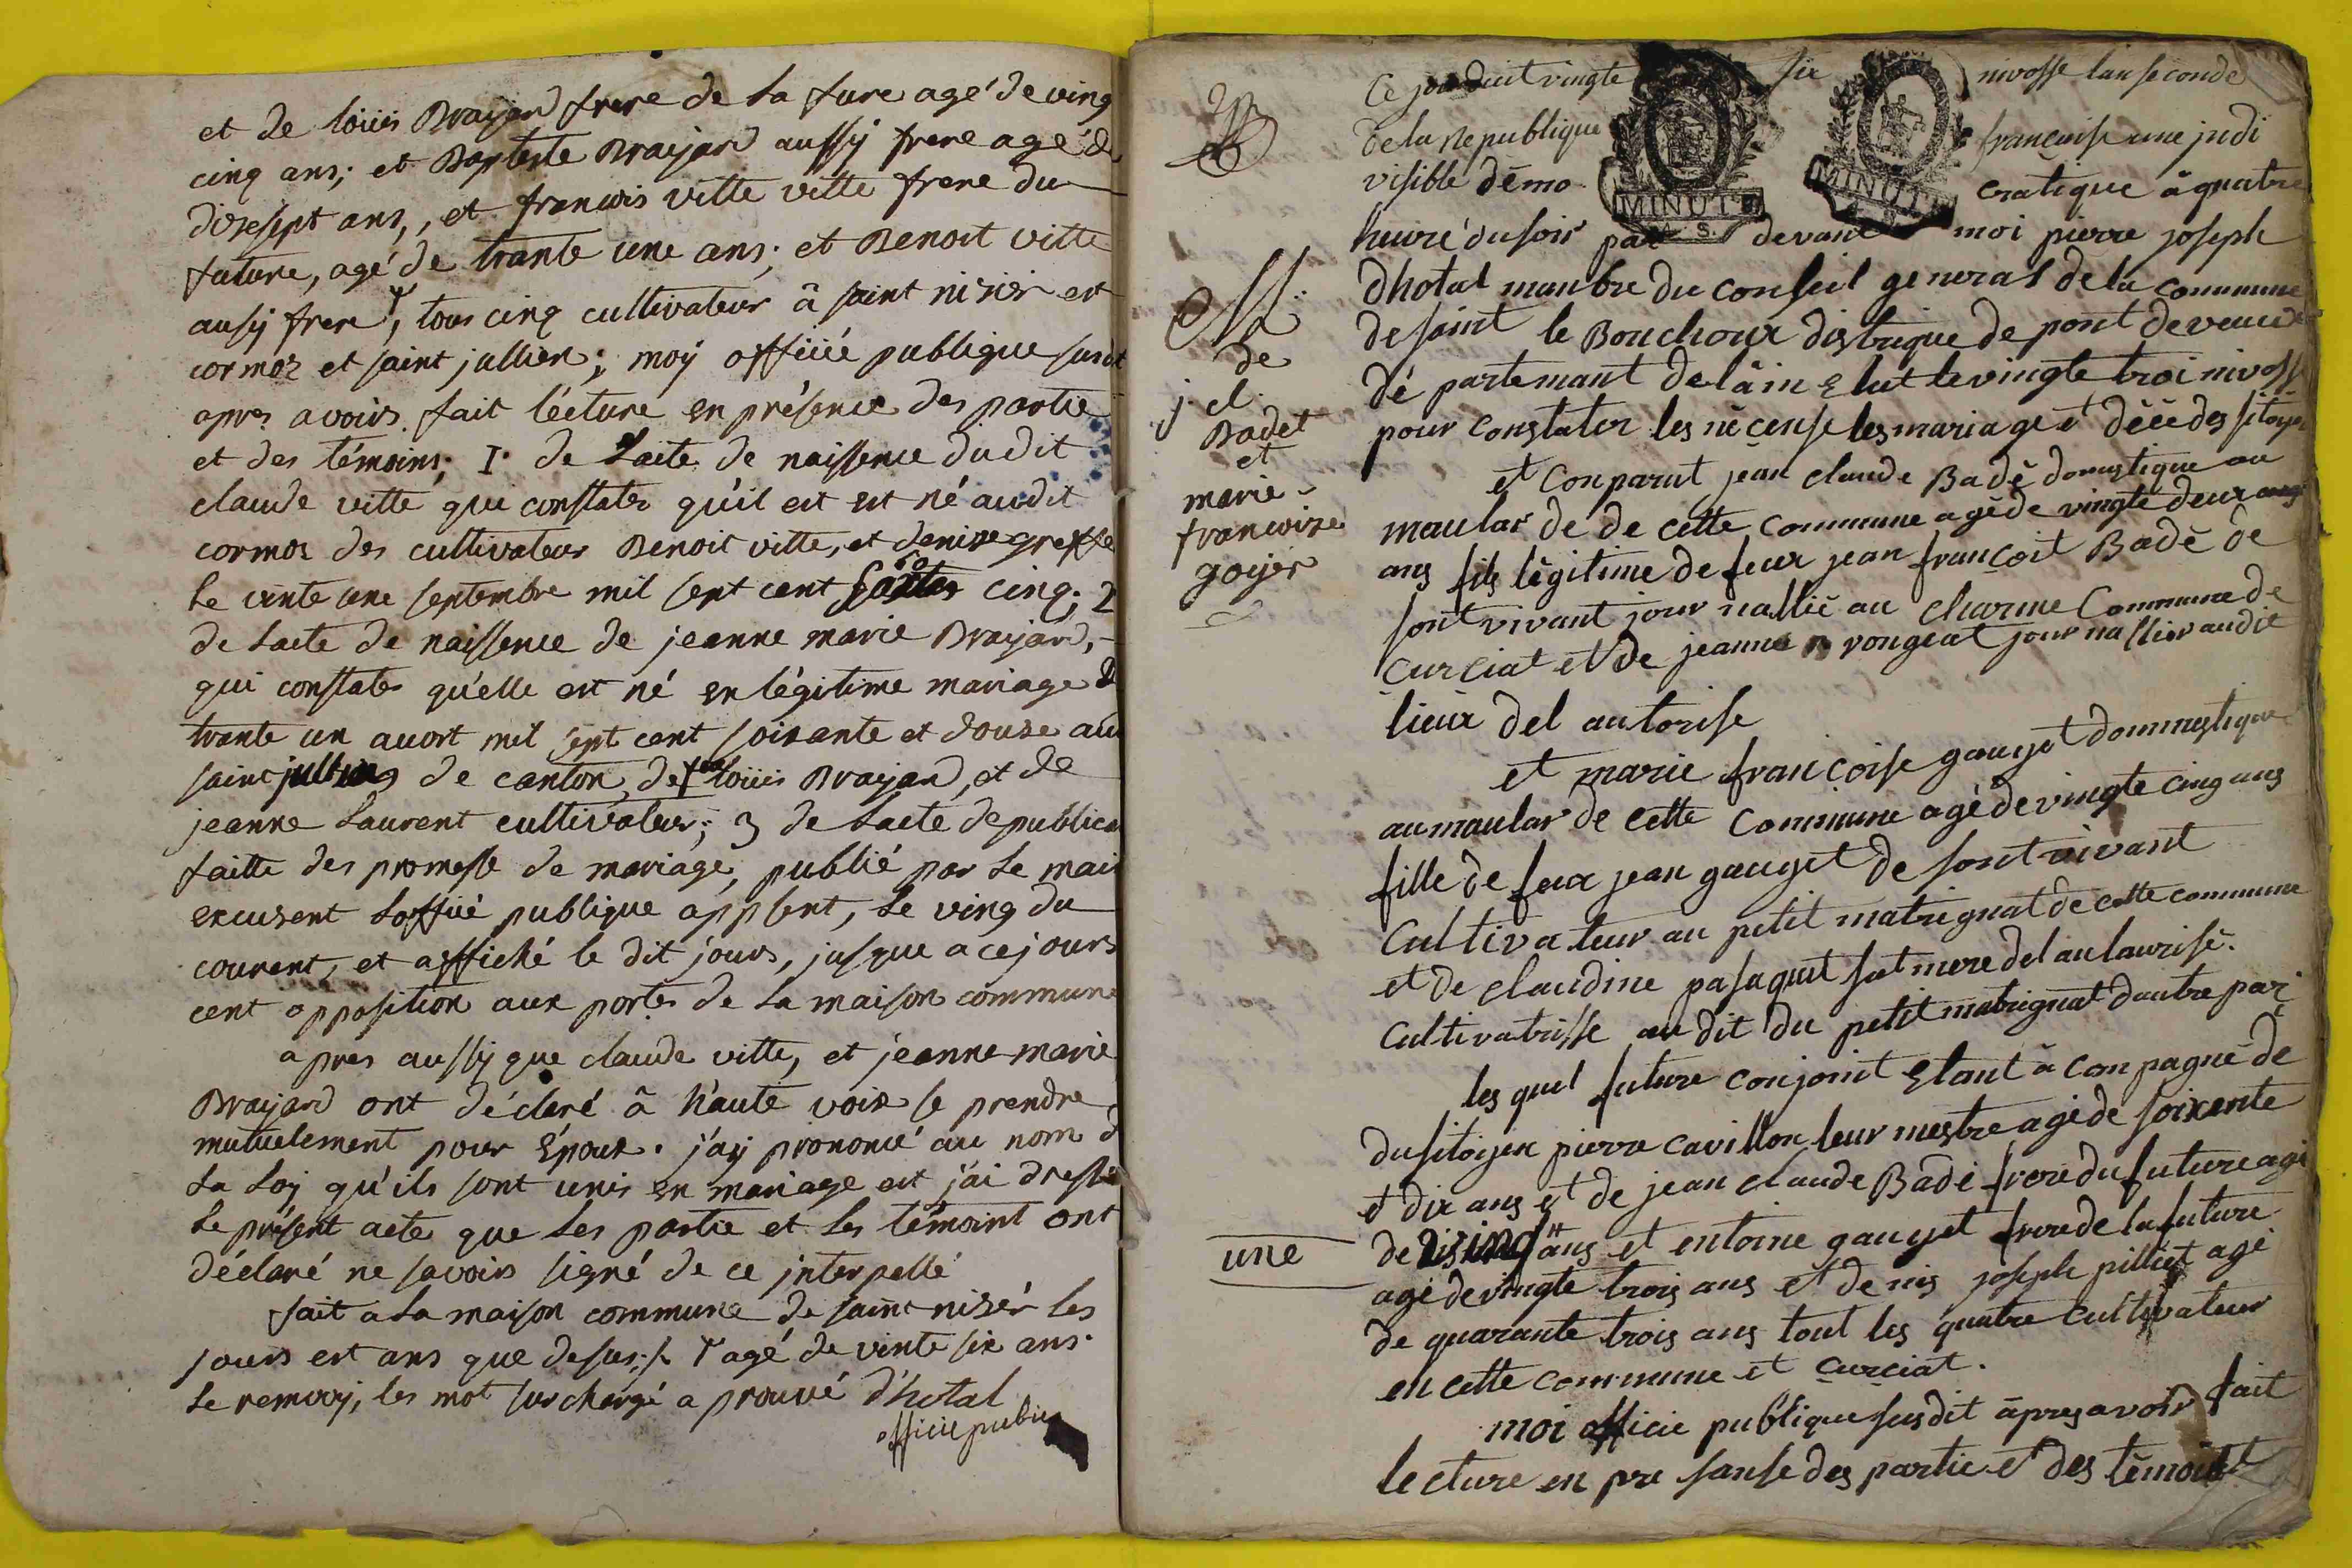 et de loüis Brayard frere de la fure agé de ving
cinq ans; et Baptiste Brayard aussy frere agé de
dixsept ans,, et francois vitte vitte frere du
future, agé de trante une ans; et Benoit vitte
ausy frere, tous cinq cultivateur â saint nizier et
cormoz et saint jullien; moy offiiié publique susdt
apres avoirs fait lécture en présence des partie
et des témoins; I° de Lacte de naissence du dit
claude vitte qui constater qu'il est est né audit
cormoz des cultivateur Benoit vitte, et denise greffe
le vinte une septembre mil sept cent cinq; 2
de lacte de naissence de jeanne marie Brayard,
qui constater qu'elle est né en légitime mariage d
trante un auort mil sept cent soixante et douze au
saint jullien de canton, de feu loüis Brayard, et de
jeanne Laurent cultivateur; 3 de Lacte de publica
faitte des promesse de mariage, publié par le mair
excusent Loffiié publique appsent, le ving du
courent, et affiché le dit jours, jusque a ce jours
cent opposition aux portes de la maison commune
apres aussy que claude vitte, et jeanne marie
Brayard ont déclaré â hauté voix se prendre
mutuelement pour Époux. j'ay prononcé au nom d
La Loy qu'ils sont unis en mariage et j'ai dressé
le présent acte que les partie et les témoint ont
déclaré ne savoirs signé de ce jnterpellé
fait a La maison commune de saint nizér les
jours est ans que desus;/. agé de vinte six ans.
le renvoy, les mot surchargé a prouvé d'hotal
officie public
Ce jourduit vingte six nivosse lan seconde
de la Republique françaisse une jndi
visible démo cratique â quatre
MINUTE
MINUT
heuré du soir par devant moi pierre joseph
dhotal manbre du conseil general de la commune
de saint le Bouchoux distrique de pont devaux
dé partemant de lâin Elut le vingte troi nivosse
pour constater les nécense les mariage et décé des sitoyen
et Conparut jean claude Badé domestique au
maular de de cette commune agé de vingte deux
ans fils légitime de feux jean françoit Badé de
sont vivant jour nallié au charme Commune de
Curciat et de jeanne rongeat jour nallier au dit
lieux del autorise
et marie françoise gauyet dommestique
au maular de cette Commune agé de vingte cinq ans
fille de feux jean gauyet de sont vivant
Cultivateur au petit matrignat de cette commune
et de claudine pasaquit sat mere del autaurisé.
Cultivatrisse au dit du petit matrignat dautre par
les quel future conjoint Etant â Conpagné de
du sitoyen pierre cavillon leur mestre agé de soixente
et dix ans et de jean claude Badé frere du future agé
de ans et entoine gauyet frere de la future
agé de vingte trois ans et denis joseph pilliet agé
de quarante trois ans tout les quatre cultivateur
en cette commune et curciat.
moi officie publique susdit âpres avoir fait
lecture en pre sanse des partie et des témoint
Ma
de
j. cl.
Badet
et
marie
francoize
goyer
une